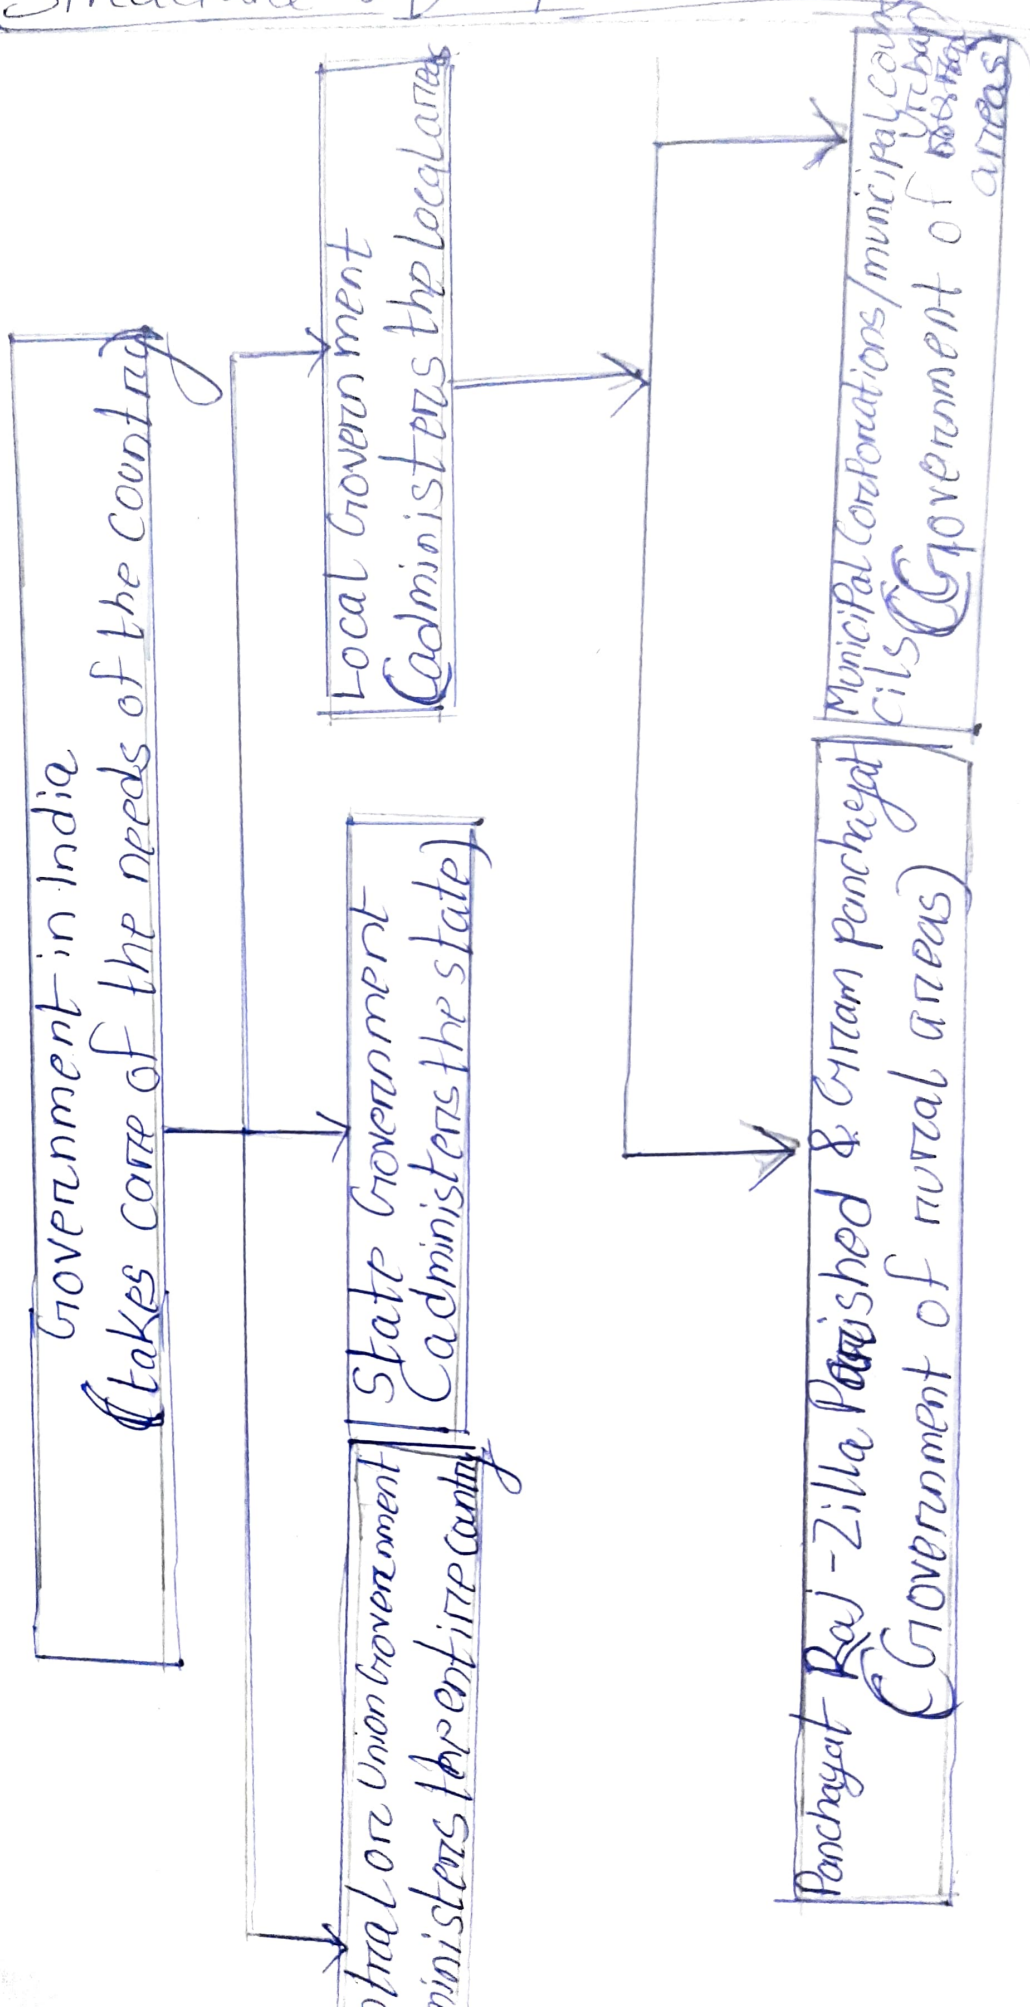 Structure
Government in India
(takes care of the needs of the country
Central or Union Government
administers the entire country
State Government
(administers the state)
Local Government
(administers the local areas
Panchayat Raj - Zilla Parished & Gram panchayat
(Government of rural areas)
Municipal Corporations/municipal coun
cils (Government of urban
areas)